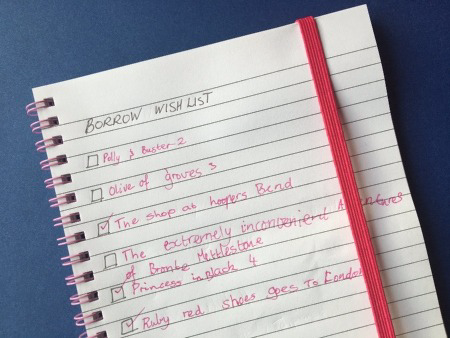 BORROW WISH LIST
Polly & Buster 2
Olive of groves 3
The shop at hoopers Bend
The extremely inconvenient Adventures
of Bronte Mettlestone
Princess in Black 4
Ruby red shoes goes To London